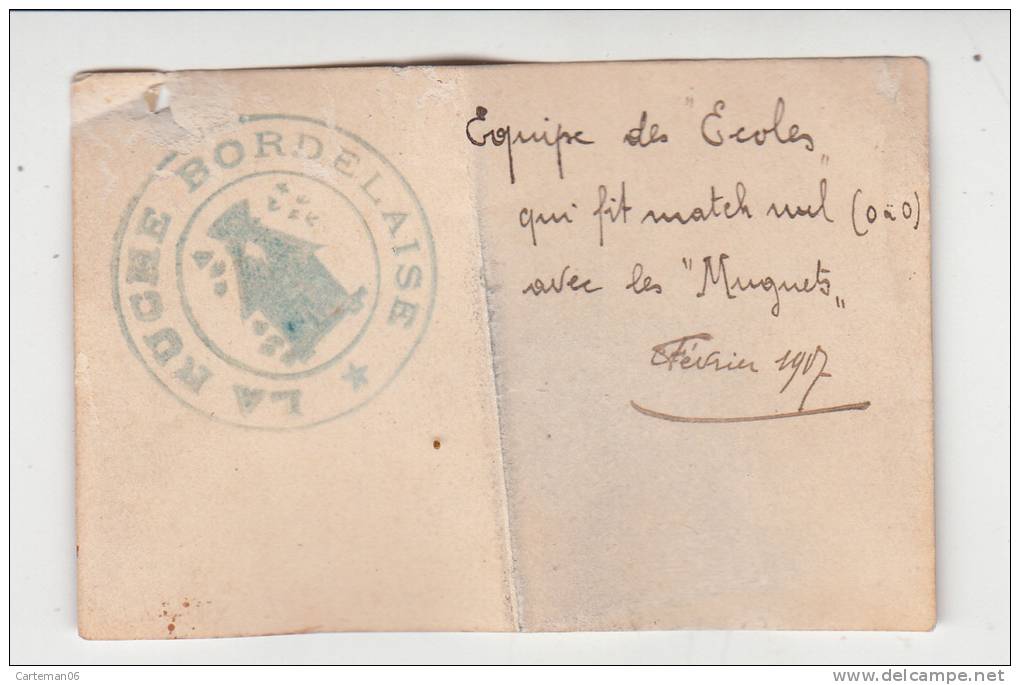 LA RUCHE BORDELAISE ★
Equipe des "Ecoles"
qui fit match nul (0 à 0)
avec les "Muguets"
Février 1907
Carteman06
delcampe.net